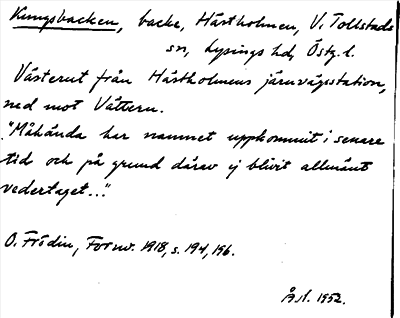 Kungsbacken, backe, Hästholmen, V. Tollstads
sn, Lysings hd, Östg. l.
Västerut från Hästholmens järnvägsstation,
ned mot Vättern.
"Måhända har namnet uppkommit i senare
tid och på grund därav ej blivit allmänt
vedertaget..."
O. Frödin, Fornv. 1918, s. 194, 196.
1952.